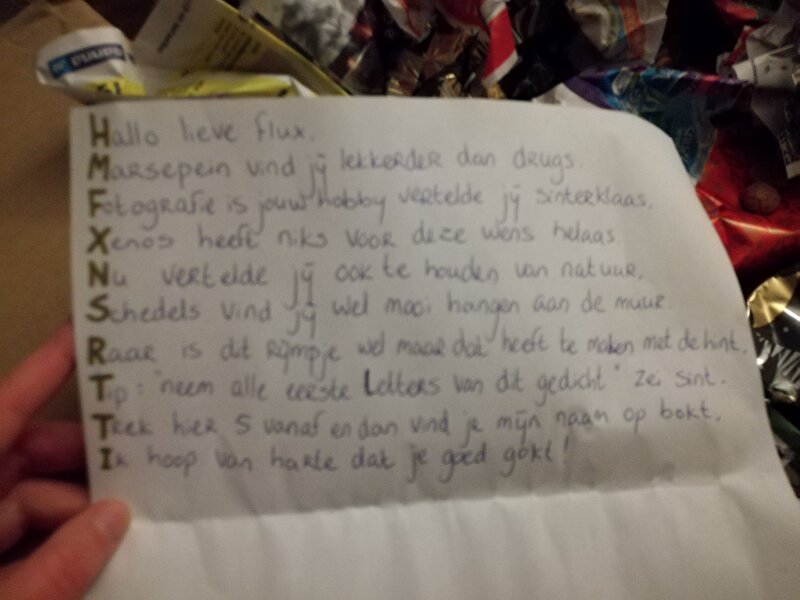 Hallo lieve flux.
Marsepein vind jij lekkerder dan drugs.
Fotografie is jouw hobby vertelde jij sinterklaas.
Xenos heeft niks voor deze wens helaas.
Nu vertelde jij ook te houden van natuur.
Schedels vind jij wel mooi hangen aan de muur.
Raar is dit rijmpje wel maar dat heeft te maken met de hint.
Tip: "neem alle eerste Letters van dit gedicht" zei sint.
Trek hier 5 vanaf en dan vind je mijn naam op bokt.
Ik hoop van harte dat je goed gokt!